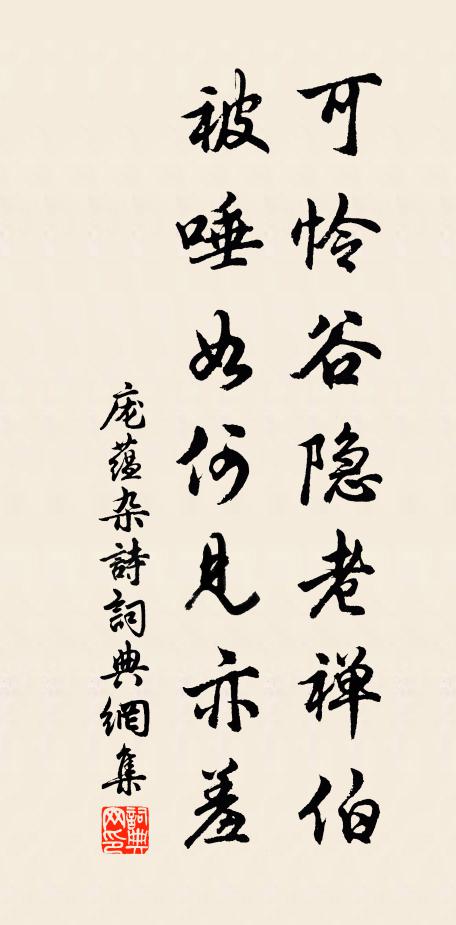 可怜谷隐老禅伯
被唾如何见亦羞
庞蕴杂詩詞典網集
詞典網印